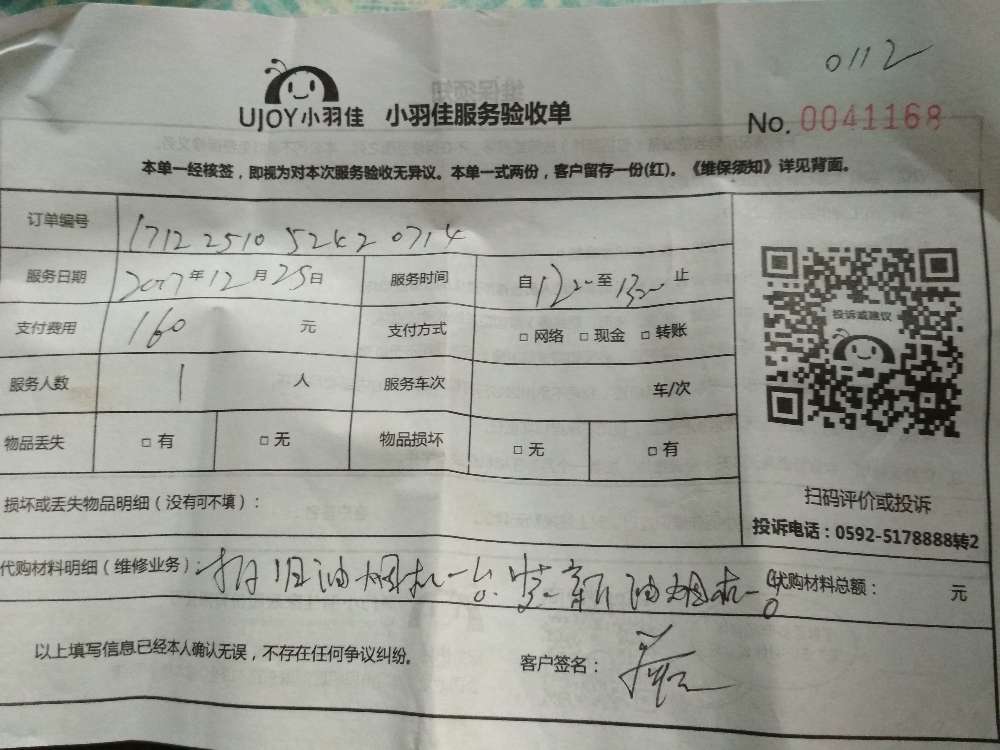 0112
UJOY小羽佳 小羽佳服务验收单
No. 0041168
本单一经核签，即视为对本次服务验收无异议。本单一式两份，客户留存一份(红)。《维保须知》详见背面。
订单编号 1712 2510 52420714
服务日期 2007年12月25日 服务时间 自1200至1300止
支付费用 160 元 支付方式 □ 网络 □ 现金 □ 转账
服务人数 1 人 服务车次 车/次
物品丢失 □ 有 □ 无 物品损坏 □ 无 □ 有
投诉或建议
扫码评价或投诉
投诉电话：0592-5178888转2
损坏或丢失物品明细（没有可不填）：
代购材料明细（维修业务）：拆旧油烟机一台.装新油烟机一台 代购材料总额： 元
以上填写信息已经本人确认无误，不存在任何争议纠纷。 客户签名：